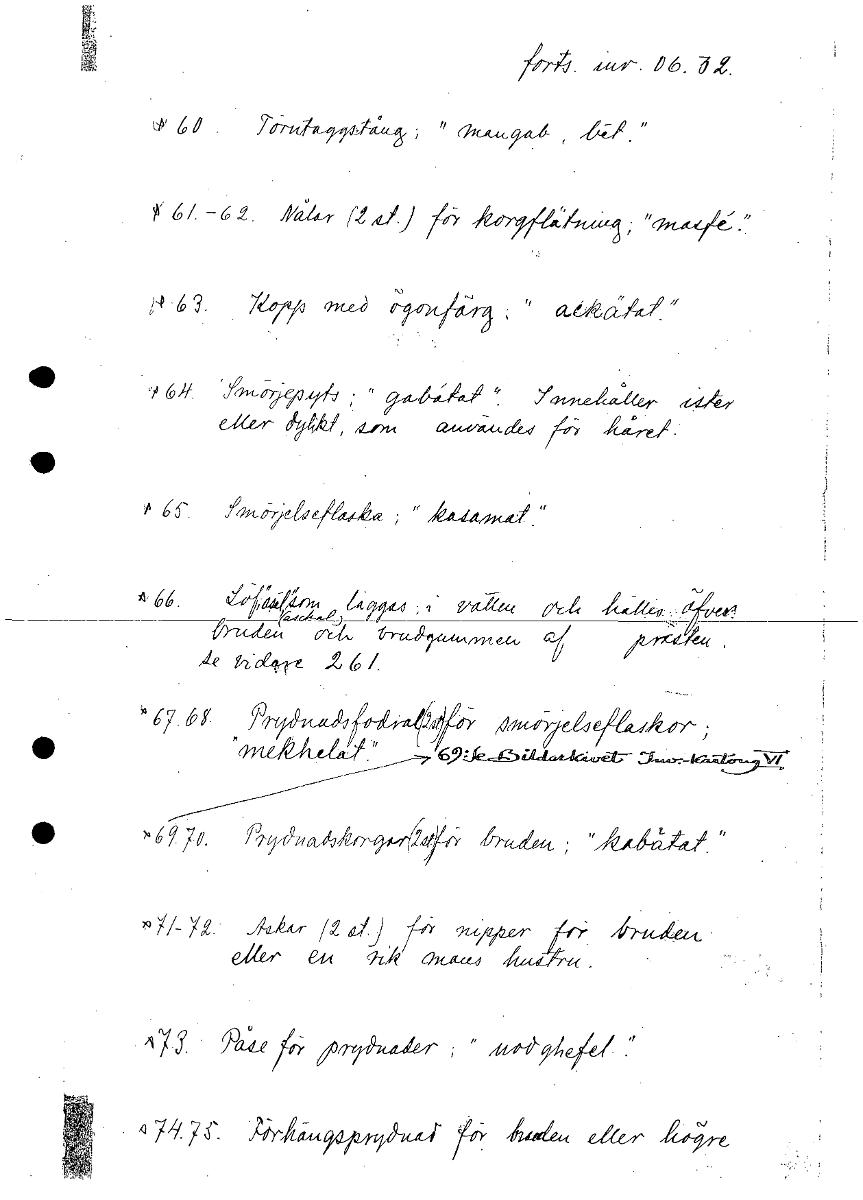 forts. inv. 06.32.
60. Törntaggstång; "mangab, bēt."
61.-62. Nålar (2 st.) för korgflätning; "masfé".
63. Kopp med ögonfärg; "ackätat."
64. Smörjepyts; "gabátat". Innehåller ister
eller dylikt, som användes för håret.
65. Smörjelseflaska; "kasamat."
66. Löf, som läggas i vatten och hälles öfver
(aschal)
bruden och brudgummen af prästen.
se vidare 261.
67.68. Prydnadsfodral (2 st) för smörjelseflaskor;
"mekhelat."
69: se Bildarkivet Inv.-Kartong VI.
69.70. Prydnadskorgar (2 st) för bruden; "kabåtat."
71-72. Askar (2 st.) för nipper för bruden
eller en rik mans hustru.
73. Påse för prydnader; "nodghefel".
74.75. Förhängsprydnad för bruden eller högre